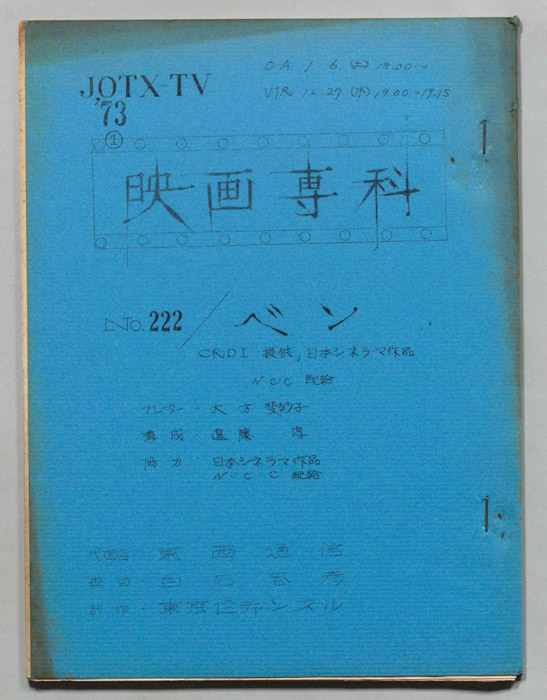 O A 1 6 (土) 18.00~
VTR 12-27 (水) 19.00~19.15
JOTX-TV
'73
①
映画専科
No. 222 / ベン
CRDI 提供, 日本シネラマ作品
N・C・C 配給
ナレーター・大方斐紗子
構成 遠藤 淳
協力 日本シネラマ作品
N・C・C 配給
代理店・東西通信
担当・白石
制作・東京